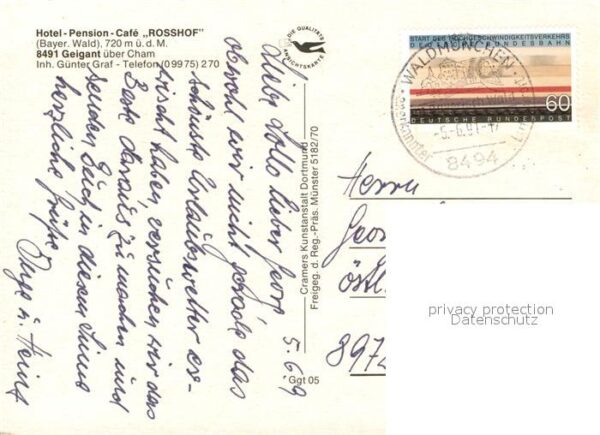 Hotel - Pension - Café „ROSSHOF"
(Bayer. Wald), 720 m ü. d. M.
8491 Geigant über Cham
Inh. Günter Graf - Telefon (0 99 75) 2 70
DIE QUALITÄTS
ANSICHTSKARTE
5.6.91
obwohl wir nicht gerade das
schönste Urlaubswetter er-
wischt haben, versuchen wir das
Beste daraus zu machen und
senden Euch in diesem Sinne
herzliche Grüße
Inge u. Heinz
Cramers Kunstanstalt Dortmund
Freigeg. d. Reg.-Präs. Münster 5182/70
Ggt 05
START DES HOCHGESCHWINDIGKEITSVERKEHRS
DEUTSCHE BUNDESBAHN
60
DEUTSCHE BUNDESPOST
WALDMÜNCHEN
-5.6.91-17
8494
Herrn
Geor
östl.
897
privacy protection
Datenschutz